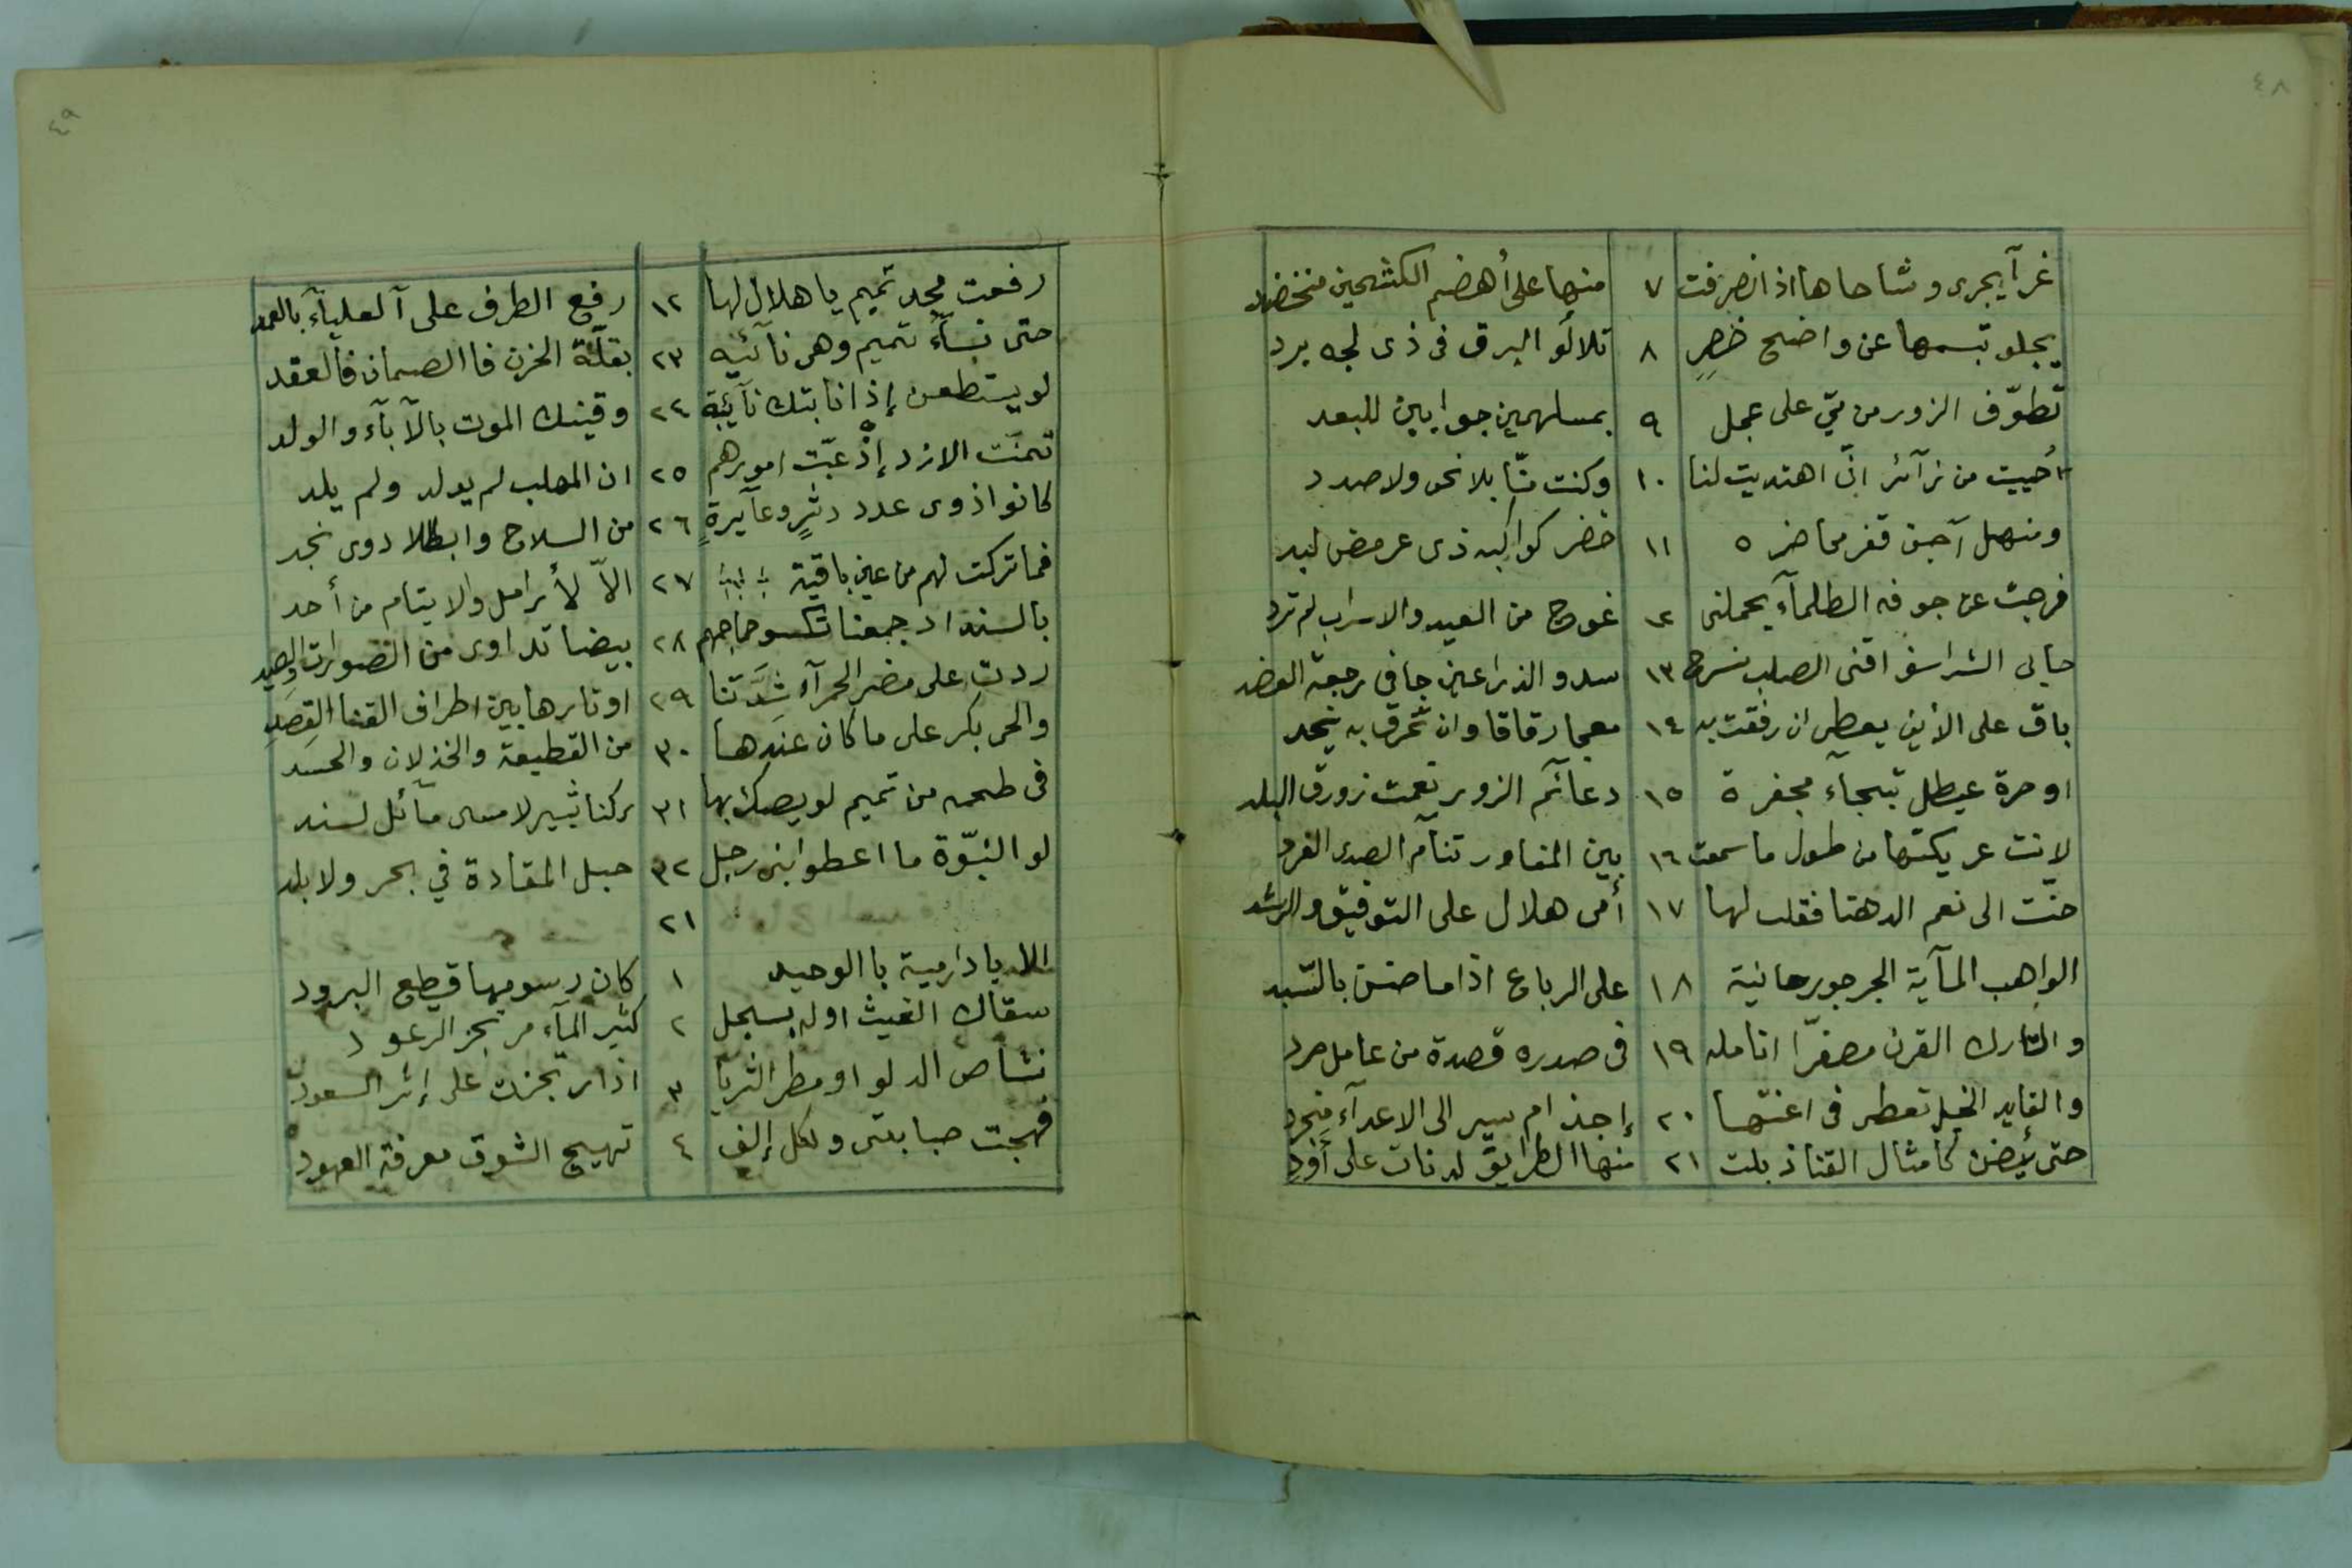 ٤٨
غرآ يجرى وشاحاها اذا نصرفت ٧ منها على أهضم الكشحين منخضد
يجلو تبسمها عن واضح خصرٍ ٨ تلالؤ البرق فى ذى لجه برد
تطوّف الزور من ميّ على عجل ٩ بمسلهمين جوابين للبعد
أحييت من زآئر انّ اهتديت لنا ١٠ وكنت منّا بلا نحو ولا صدد
ومنهل آجن قفر محاضره ١١ خضر كواكبه ذى عرمض لبد
فرجت عن جوفه الظلمآء يحملنى ١٢ غوج من العيد والاسراب لم ترد
حابى الشراسف اقنى الصلب منسرح ١٣ سدو الذراعين جافى رجعة العضد
باق على الأين يعطى ان رفقت به ١٤ معجا رقاقا وان تخرق به يخد
او حرة عيطل ثبجآء مجفرة ١٥ دعآئم الزور نعمت زورق البلد
لانت عريكتها من طول ما سمعت ١٦ بين المفاوز تنآم الصدى الغرد
حنّت الى نعم الدهنا فقلت لها ١٧ أمى هلال على التوفيق والرشد
الواهب المآية الجرجور حانية ١٨ على الرباع اذا ما ضن بالسّبد
والتارك القرن مصفرّا انامله ١٩ فى صدره قصدة من عامل صرد
والقايد الخيل تعطى فى اعنتها ٢٠ إجذام سير الى الاعدآء منجرد
حتى يئضن كامثال القنا ذبلت ٢١ منها الطرايق لدنات على أود
٤٩
رفعت مجد تميم يا هلال لها ١٢ رفع الطرف على آلعليآء بالعمد
حتى نسآء تميم وهى نآئيه ٢٣ بقلّة الحزن فا الصمان فالعقد
لو يستطعن إذا نابتك نآيبة ٢٤ وقينك الموت بالآبآء والولد
تمنّت الازد إذ غبّت امورهم ٢٥ ان المهلب لم يولد ولم يلد
كانوا ذوى عدد دثرٍ وعآيرةٍ ٢٦ من السلاح وابطالا ذوى نجد
فما تركت لهم من عين باقية ٢٧ الاّ لأرامل والايتام من أحد
بالسند اذ جمعنا تكسو جماجمهم ٢٨ بيضا تداوى من الصورات والصيد
ردت على مضر الحمرآء شَدَّتنا ٢٩ اوتارها بين اطراف القنا القِصَدِ
والحى بكر على ما كان عندها ٣٠ من القطيعة والخذلان والحسد
فى طحمه من تميم لو يصك بها ٣١ ركنا ثبير لامسى مآئل لسند
لو النبّوة ما اعطوا بنى رجل ٣٢ حبل المقادة في بحر ولا بلد
٢١
الا يا دارمية با الوحيد ١ كان رسومها قطع البرود
سقاك الغيث اوله بسجل ٢ كثير المآء مرتجز الرعود
نشاص الدلو او مطر الثريّا ٣ اذا ارتجزت على إثر السعود
فهجت صبابتى ولكل إلف ٤ تهيج الشوق معرفة العهود